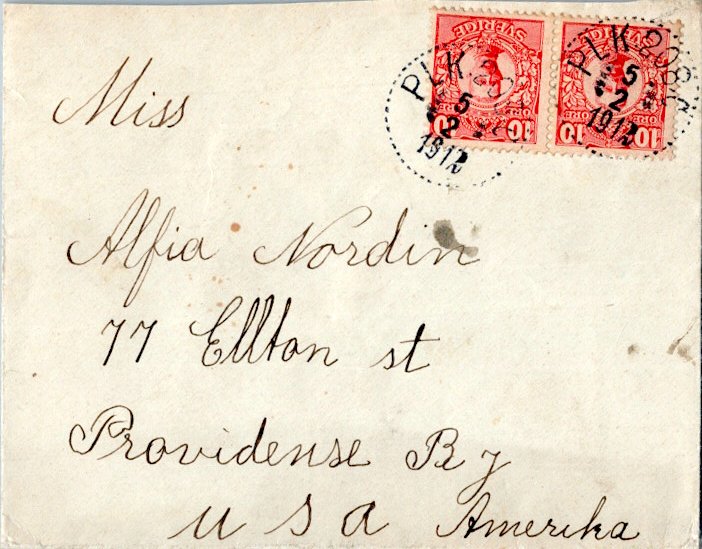 SVERIGE SVERIGE
10 ÖRE 10 10 ÖRE 10
PLK 208
5
2
1912
PLK 208
5
2
1912
Miss
Alfia Nordin
77 Ellton st
Providense R y
U S A Amerika